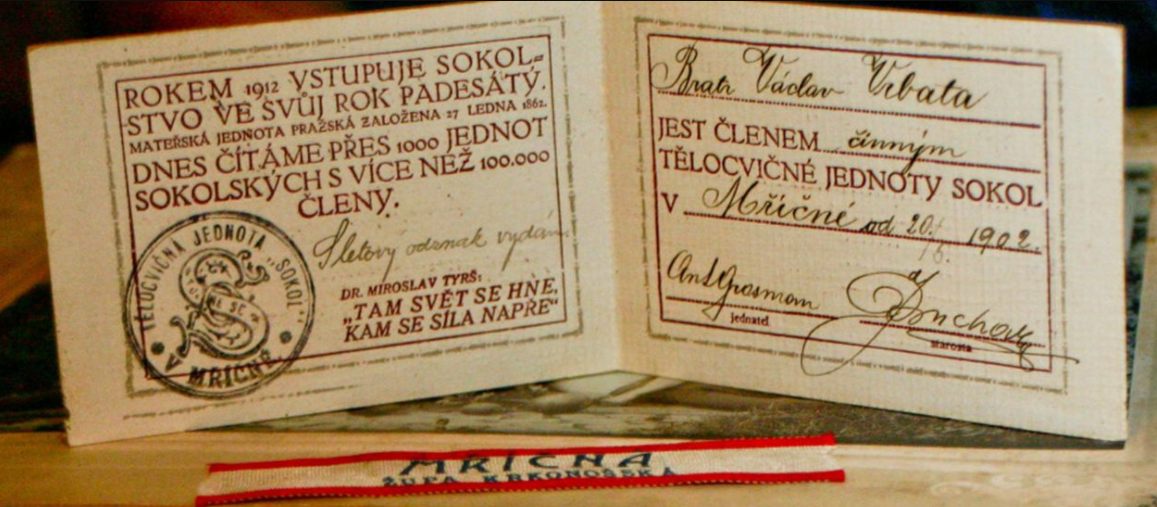 ROKEM 1912 VSTUPUJE SOKOL=
STVO VE SVŮJ ROK PADESÁTÝ.
MATEŘSKÁ JEDNOTA PRAŽSKÁ ZALOŽENA 27 LEDNA 1862.
DNES ČÍTÁME PŘES 1000 JEDNOT
SOKOLSKÝCH S VÍCE NEŽ 100.000
ČLENY.
Sletový odznak vydán.
DR. MIROSLAV TYRŠ:
„TAM SVĚT SE HNE,
KAM SE SÍLA NAPŘE“
TĚLOCVIČNÁ JEDNOTA „SOKOL“
V MŘIČNÉ
Bratr Václav Vrbata
JEST ČLENEM činným
TĚLOCVIČNÉ JEDNOTY SOKOL
V Mříčné od 20/6. 1902.
Ant Grosman
jednatel
starosta
MŘÍČNÁ
ŽUPA KRKONOŠSKÁ